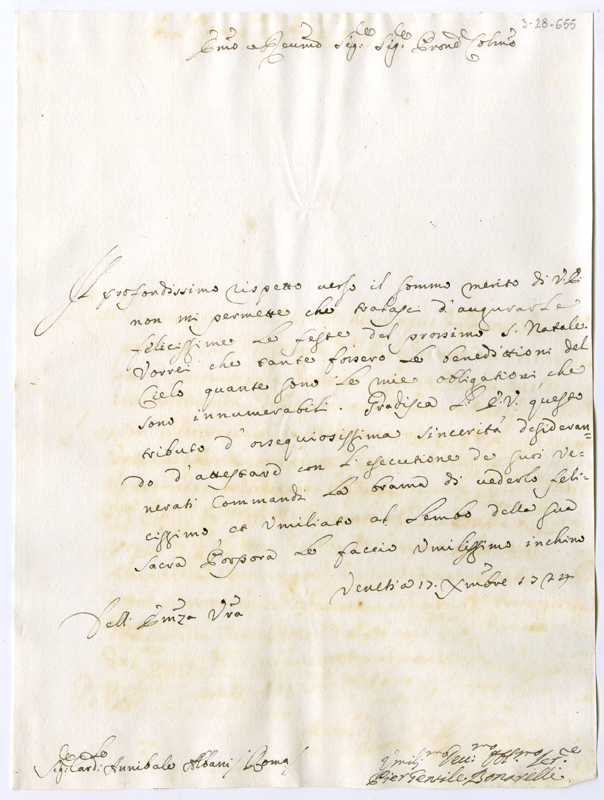 3-28-655
Emo e Reumo Sig.re Sig.re Prone Colmo
Il profondissimo rispetto verso il sommo merito di V.E.
non mi permette che tralasci d'augurarle
felicissime le feste del prossimo S. Natale.
Vorrei che tante fossero le benedittioni del
Cielo quante sono le mie obligationi, che
sono innumerabili. Gradisca L'E.V. questo
tributo d'ossequiosissima sincerità desideran=
do d'attestare con l'esecutione de suoi ve=
nerati Commandi la brama di vederlo feli=
cissimo, et Umiliato al Lembo della sua
Sacra Porpora le faccio umilissimo inchino
Venetia 17 Xmbre 1724
Dell' Emza Vra
Sig.re Card.le Annibale Albani Roma
Umiliss.mo Dev.mo Obl.mo Ser.re
Pier Gentile Bonarelli